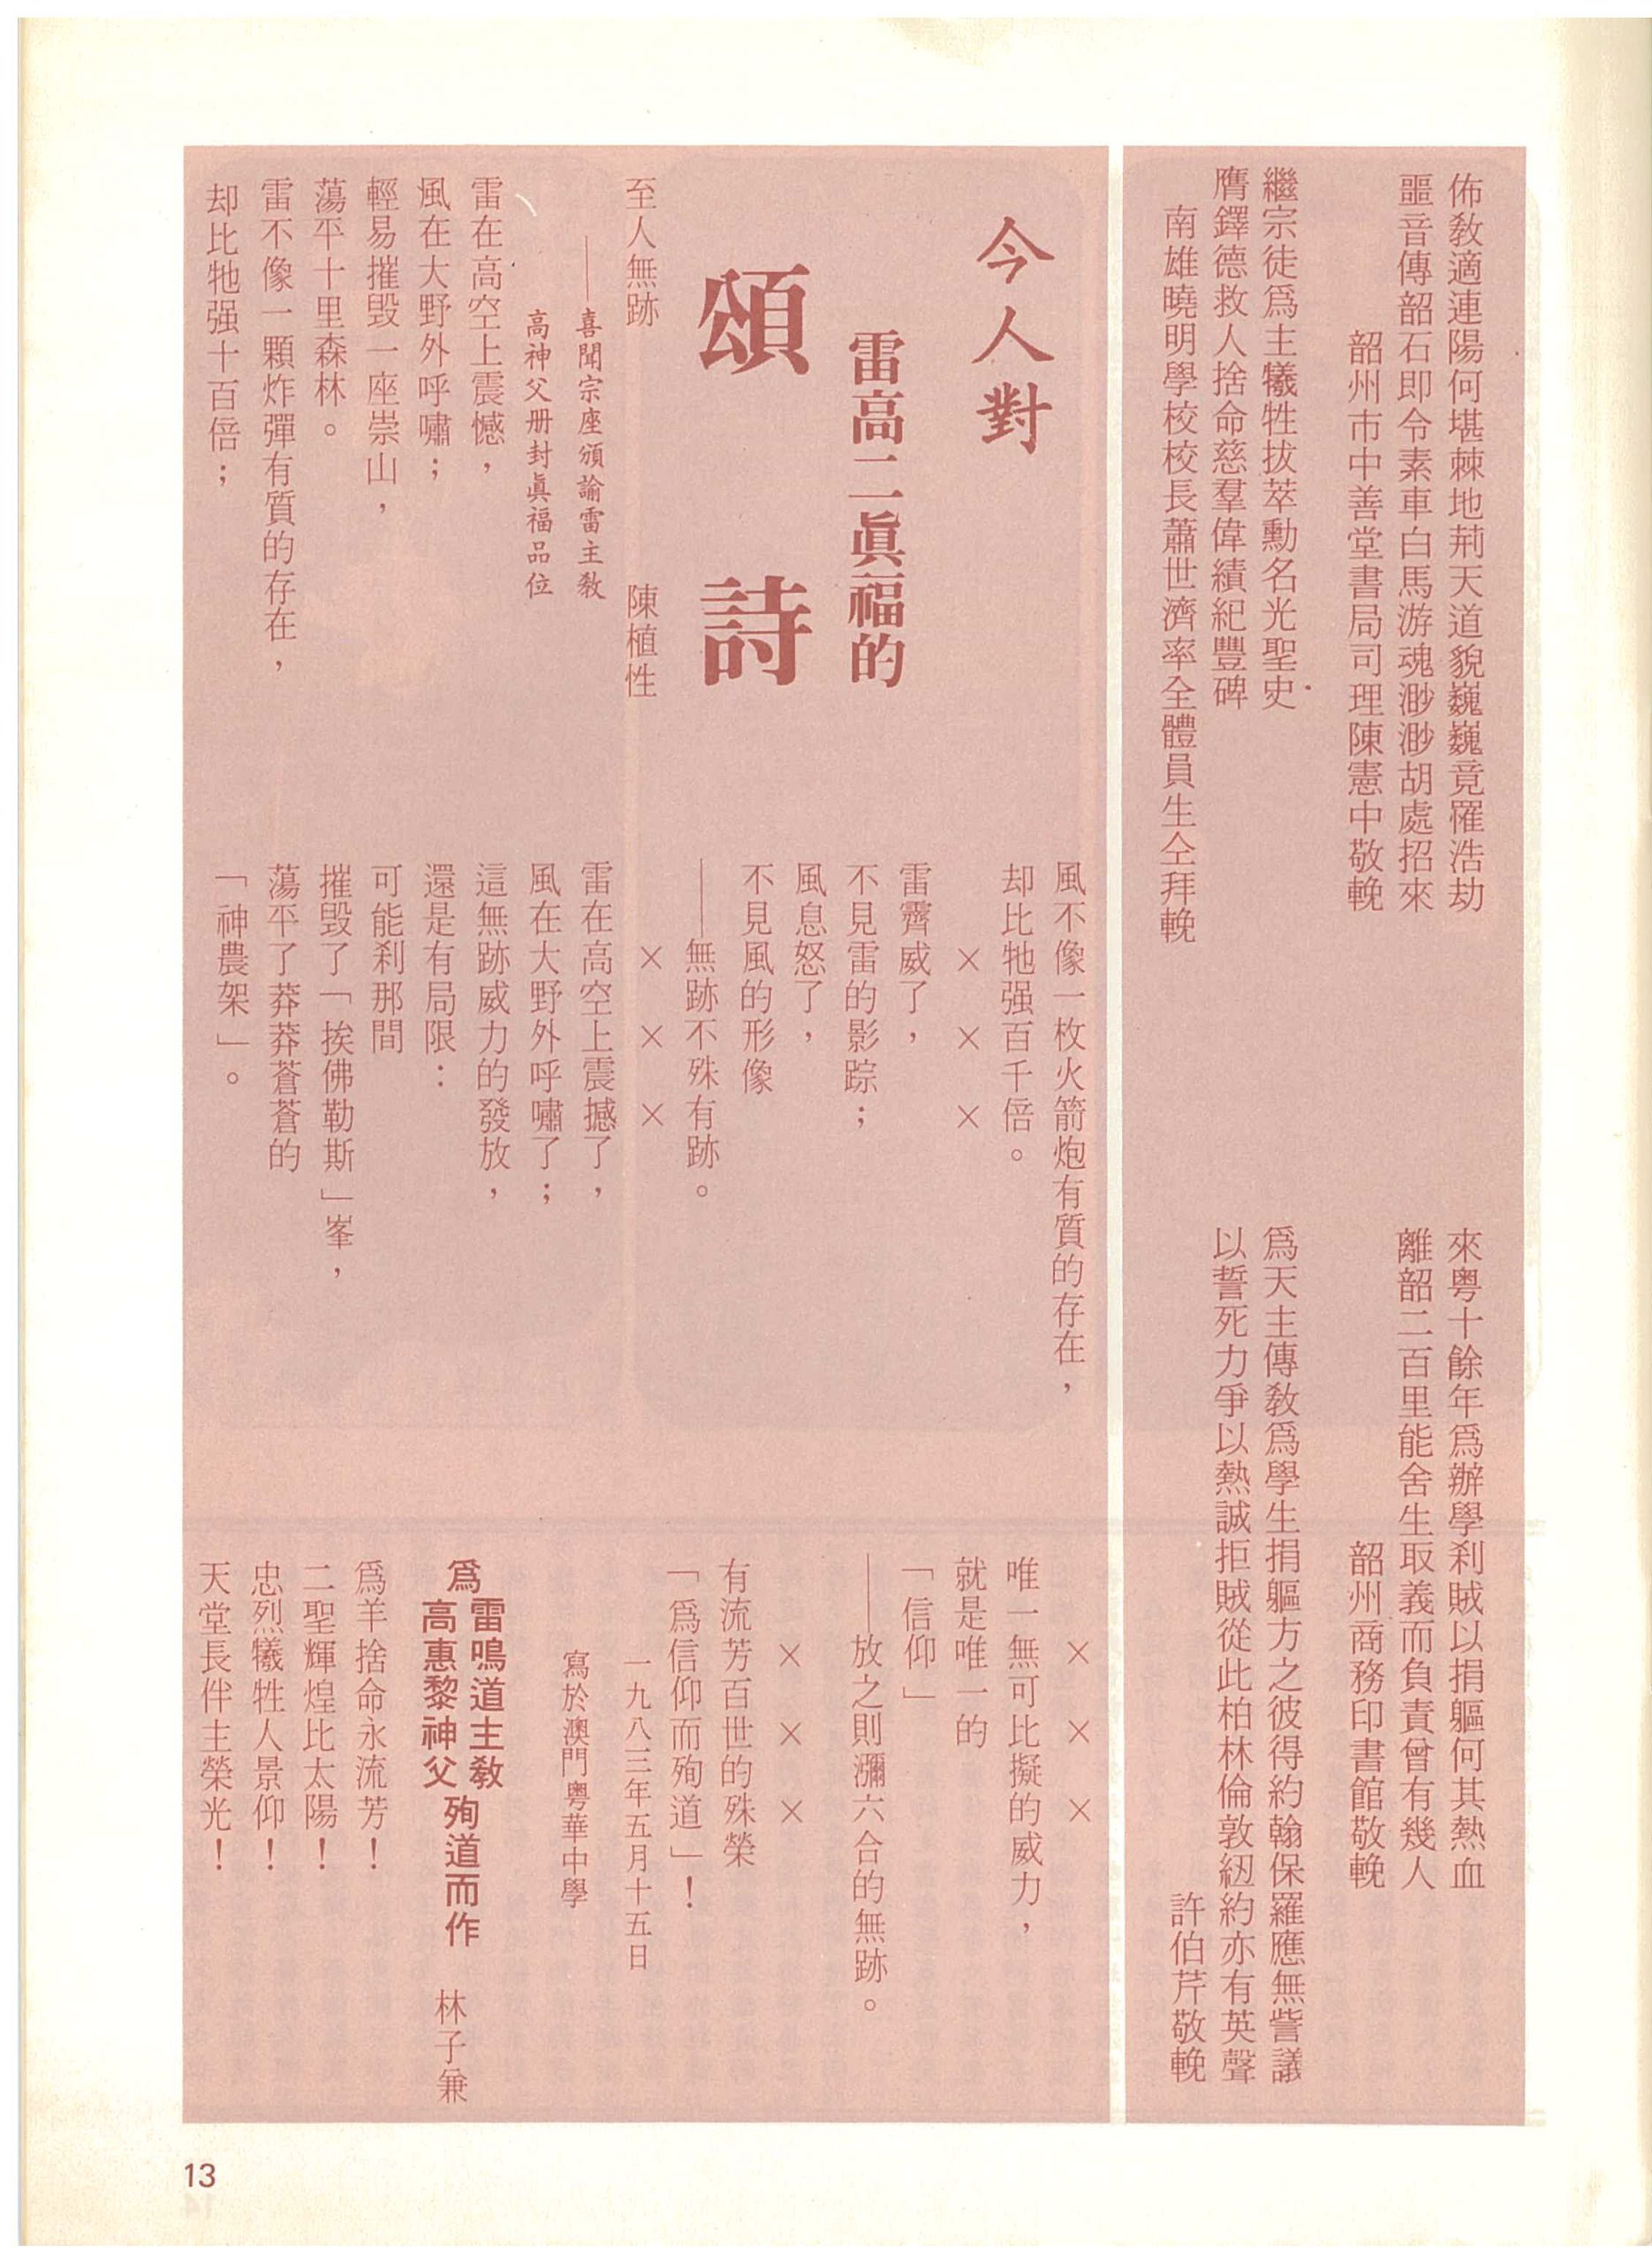 佈教適連陽何堪棘地荊天道貌巍巍竟罹浩劫
噩音傳韶石即令素車白馬游魂渺渺胡處招來
韶州市中善堂書局司理陳憲中敬輓
繼宗徒爲主犧牲拔萃勳名光聖史
膺鐸德救人捨命慈羣偉績紀豐碑
南雄曉明學校校長蕭世濟率全體員生仝拜輓
來粤十餘年爲辦學刹賊以捐軀何其熱血
離韶二百里能舍生取義而負責曾有幾人
韶州商務印書館敬輓
爲天主傳教爲學生捐軀方之彼得約翰保羅應無訾議
以誓死力爭以熱誠拒賊從此柏林倫敦紐約亦有英聲
許伯芹敬輓
今人對
雷高二眞福的
頌詩
至人無跡 陳植性
——喜聞宗座頒諭雷主教
高神父册封眞福品位
雷在高空上震憾，
風在大野外呼嘯；
輕易摧毀一座崇山，
蕩平十里森林。
雷不像一顆炸彈有質的存在，
却比牠强十百倍；
風不像一枚火箭炮有質的存在，
却比牠强百千倍。
× × ×
雷霽威了，
不見雷的影踪；
風息怒了，
不見風的形像
——無跡不殊有跡。
× × ×
雷在高空上震撼了，
風在大野外呼嘯了；
這無跡威力的發放，
還是有局限：
可能刹那間
摧毀了「挨佛勒斯」峯，
蕩平了莽莽蒼蒼的
「神農架」。
× × ×
唯一無可比擬的威力，
就是唯一的
「信仰」
——放之則瀰六合的無跡。
× × ×
有流芳百世的殊榮
「爲信仰而殉道」！
一九八三年五月十五日
寫於澳門粤華中學
爲雷鳴道主教
高惠黎神父殉道而作 林子兼
爲羊捨命永流芳！
二聖輝煌比太陽！
忠烈犧牲人景仰！
天堂長伴主榮光！
13